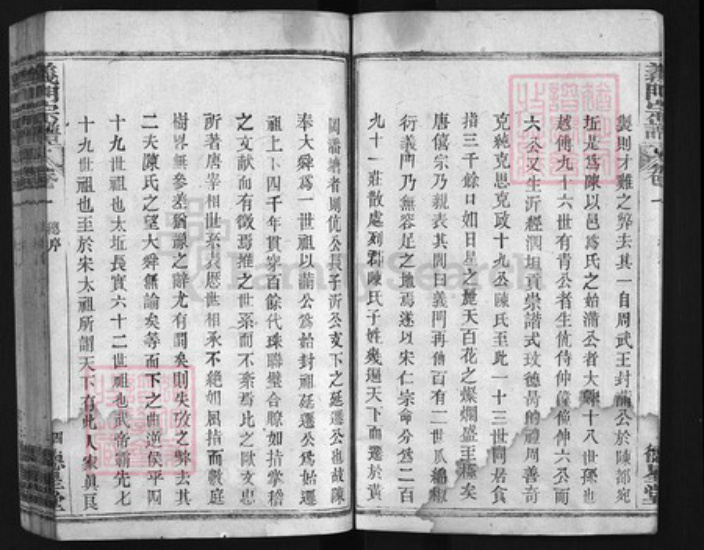 製則才難之弊去其一自周武王封滿公於陳都宛
坵是爲陳以邑爲氏之始滿公者大舜十八世孫也
越傳九十六世有青公者生伉侍仲僮伸六公而
六公又生沂經泗坦貢崇諧式玫德昺的禮周善
克純克思克政十九公陳氏至此一十三世同居食
指三千餘口如日星之麗天百花之燦爛盛王矣
唐僖宗乃親表其閭曰義門再傳百有二世瓜綿椒
衍義門乃無容足之地焉遂以宋仁宗命分爲二百
九十一莊散處列郡陳氏子姓幾遍天下而遷於黃
岡潘塘者則伉公長子沂公支下之延遷公也故陳
奉大舜爲一世祖以滿公爲始封祖延遷公爲始遷
祖上下四千年貫穿百餘代珠聯璧合瞭如指掌稽
之文獻而有徵焉推之世系而不紊焉比之歐文忠
所著唐宰相世系表歷世相承不絶如屈指而數庭
樹畧無參差猶諒之辭尤有間矣則失攷之弊去其
二夫陳氏之望大舜無論矣等而下之曲逆侯平四
十九世祖也太坵長實六十二世祖也武帝霸先七
十九世祖也至於宋太祖所謂天下有此人家眞良
義門宗譜
卷一
總序
四
德星堂
義門宗譜
德星堂
FamilySearch